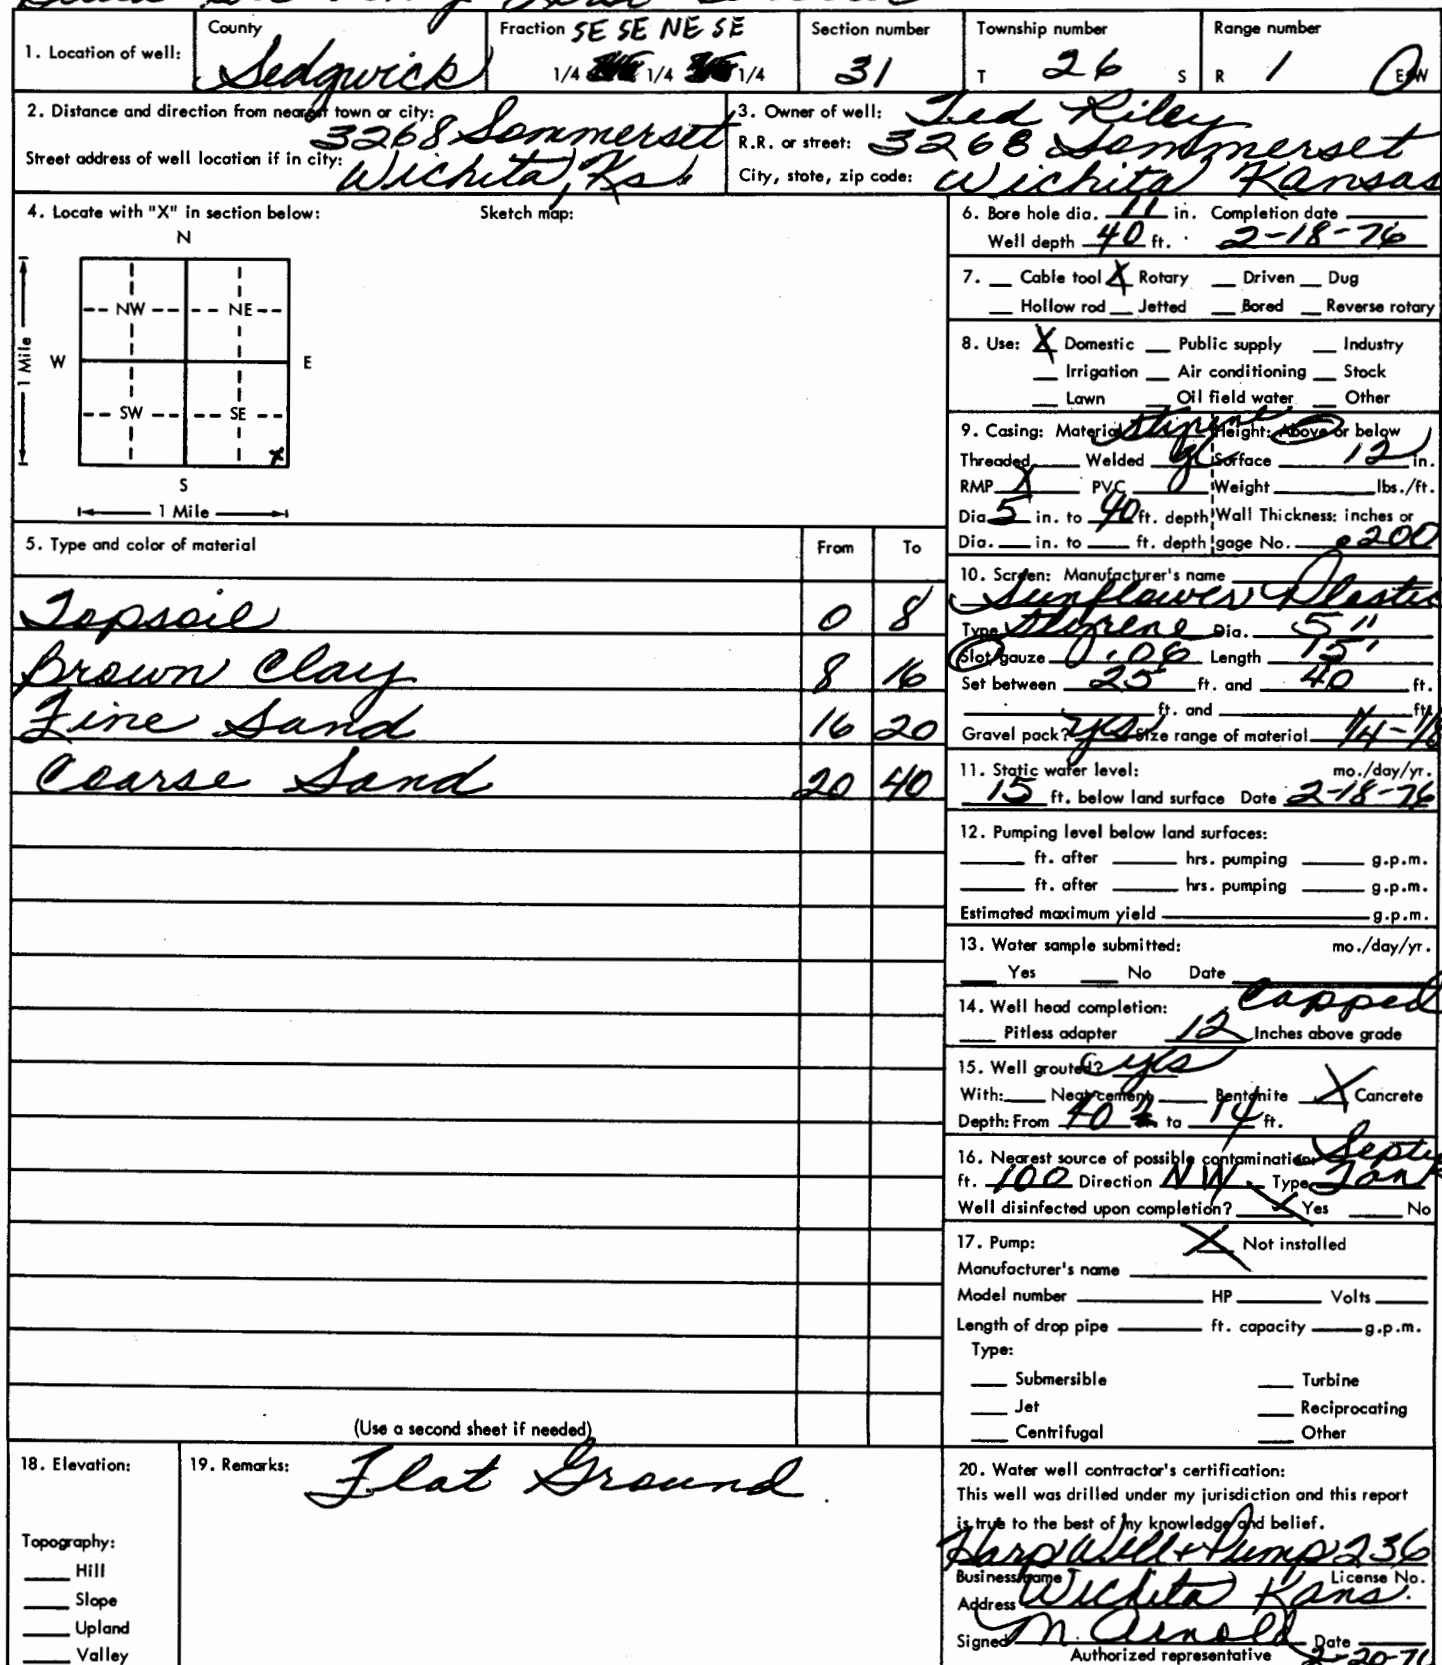 County Fraction SE SE NE SE Section number Township number Range number
1. Location of well: Sedgwick 1/4 1/4 1/4 31 T 26 S R 1 E/W
2. Distance and direction from nearest town or city: 3268 Sommerset
Street address of well location if in city: Wichita, Ks.
3. Owner of well: Ted Riley
R.R. or street: 3268 Sommerset
City, state, zip code: Wichita Kansas
4. Locate with "X" in section below: Sketch map:
N
NW NE
W E
1 Mile
SW SE X
S
1 Mile
5. Type and color of material From To
Topsoil 0 8
Brown Clay 8 16
Fine Sand 16 20
Coarse Sand 20 40
(Use a second sheet if needed)
6. Bore hole dia. 11 in. Completion date
Well depth 40 ft. 2-18-76
7. __ Cable tool X Rotary __ Driven __ Dug
__ Hollow rod __ Jetted __ Bored __ Reverse rotary
8. Use: X Domestic __ Public supply __ Industry
__ Irrigation __ Air conditioning __ Stock
__ Lawn __ Oil field water __ Other
9. Casing: Material Styrene Height: Above or below
Threaded __ Welded __ Surface 12 in.
RMP X PVC __ Weight __ lbs./ft.
Dia. 5 in. to 40 ft. depth Wall Thickness: inches or
Dia. __ in. to __ ft. depth gage No. .200
10. Screen: Manufacturer's name
Sunflower Plastic
Type Styrene Dia. 5"
Slot/gauze .06 Length 15'
Set between 25 ft. and 40 ft.
__ ft. and __ ft.
Gravel pack? yes Size range of material 1/4-1/8
11. Static water level: mo./day/yr.
15 ft. below land surface Date 2-18-76
12. Pumping level below land surfaces:
__ ft. after __ hrs. pumping __ g.p.m.
__ ft. after __ hrs. pumping __ g.p.m.
Estimated maximum yield __ g.p.m.
13. Water sample submitted: mo./day/yr.
__ Yes __ No Date __
14. Well head completion: Capped
__ Pitless adapter 12 Inches above grade
15. Well grouted? yes
With: __ Neat cement __ Bentonite X Concrete
Depth: From 40 to 14 ft.
16. Nearest source of possible contamination: Septic
ft. 100 Direction NW Type Tank
Well disinfected upon completion? X Yes __ No
17. Pump: X Not installed
Manufacturer's name __
Model number __ HP __ Volts __
Length of drop pipe __ ft. capacity __ g.p.m.
Type:
__ Submersible __ Turbine
__ Jet __ Reciprocating
__ Centrifugal __ Other
18. Elevation:
Topography:
__ Hill
__ Slope
__ Upland
__ Valley
19. Remarks: Flat Ground
20. Water well contractor's certification:
This well was drilled under my jurisdiction and this report
is true to the best of my knowledge and belief.
Harp Well & Pump 236
Business name License No.
Address Wichita Kans.
Signed M. Arnold Date 2-20-76
Authorized representative